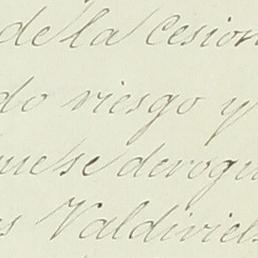 de la Cesion
do riesgo y
que se derogu
es Valdiviels